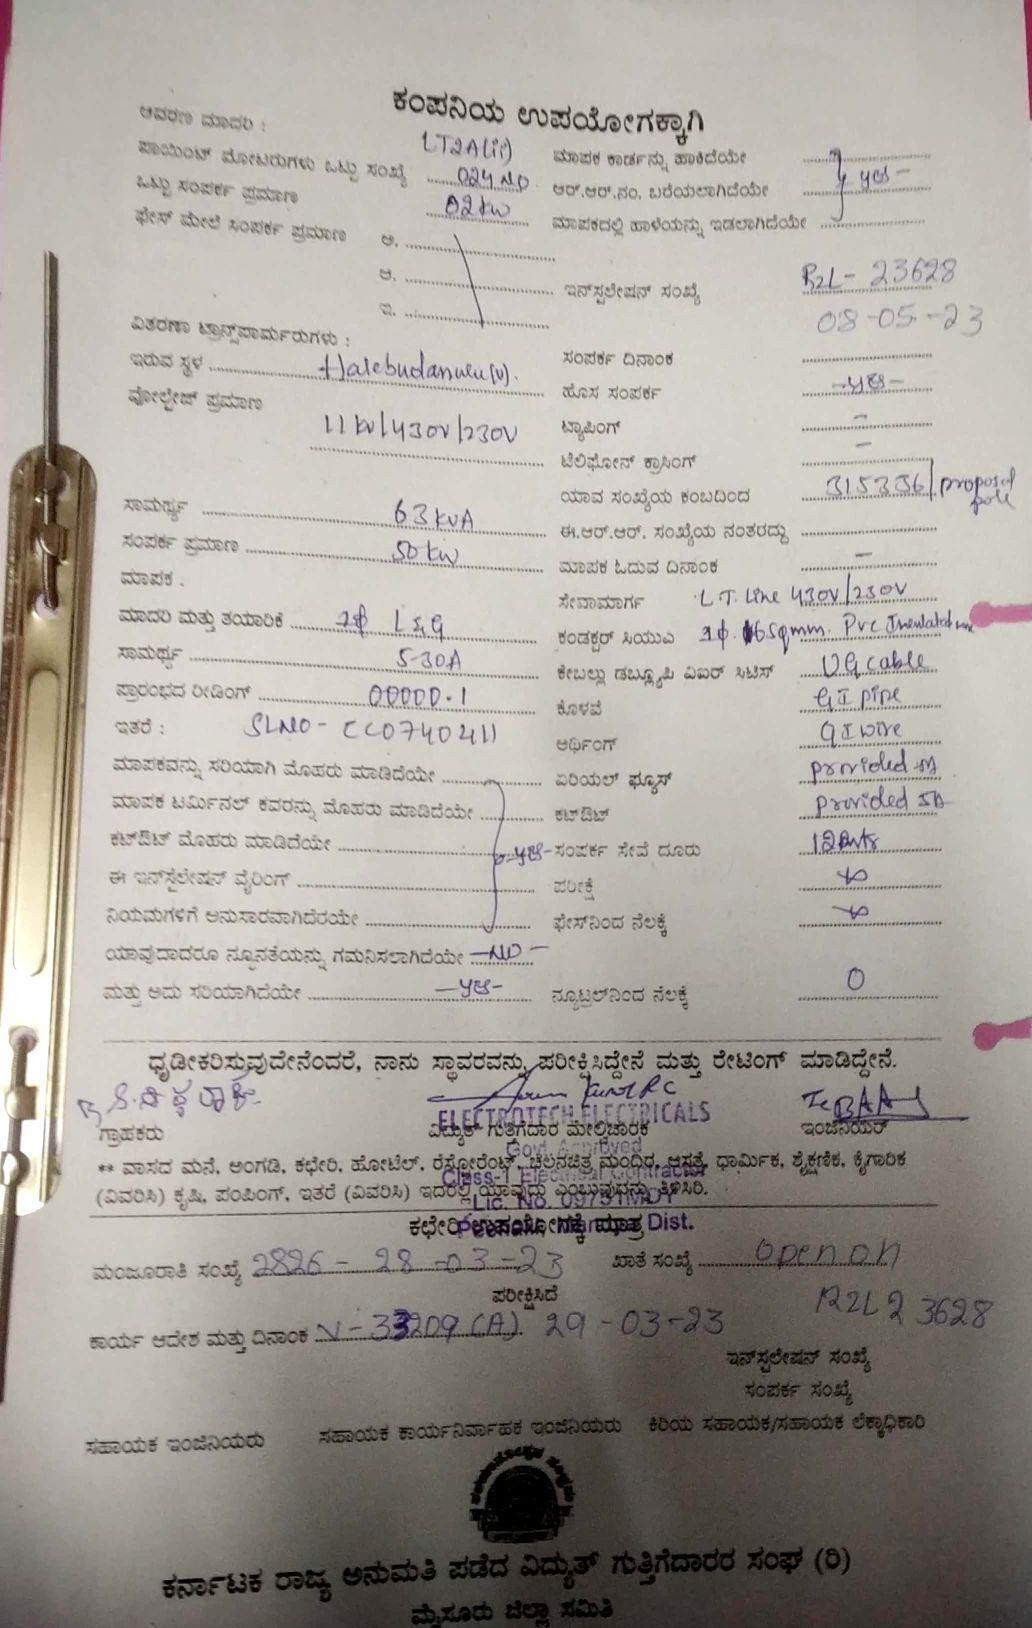 ಕಂಪನಿಯ ಉಪಯೋಗಕ್ಕಾಗಿ
ಆವರಣ ಮಾದರಿ : LT2A(ii) ಮಾಪಕ ಕಾರ್ಡನ್ನು ಹಾಕಿದೆಯೇ
ಪಾಯಿಂಟ್ ಮೋಟರುಗಳು ಒಟ್ಟು ಸಂಖ್ಯೆ 024 NO ಆರ್.ಆರ್.ನಂ. ಬರೆಯಲಾಗಿದೆಯೇ yes -
ಒಟ್ಟು ಸಂಪರ್ಕ ಪ್ರಮಾಣ 02 kw ಮಾಪಕದಲ್ಲಿ ಹಾಳೆಯನ್ನು ಇಡಲಾಗಿದೆಯೇ
ಫೇಸ್ ಮೇಲೆ ಸಂಪರ್ಕ ಪ್ರಮಾಣ ಅ.
ಆ. ಇನ್‌ಸ್ಟಲೇಷನ್ ಸಂಖ್ಯೆ R2L - 23628
ಇ. 08-05-23
ವಿತರಣಾ ಟ್ರಾನ್ಸ್‌ಪಾರ್ಮರುಗಳು :
ಇರುವ ಸ್ಥಳ (v). ಸಂಪರ್ಕ ದಿನಾಂಕ
ವೋಲ್ಟೇಜ್ ಪ್ರಮಾಣ ಹೊಸ ಸಂಪರ್ಕ -yes-
11 kV/430V/230V ಟ್ಯಾಪಿಂಗ್ -
ಟೆಲಿಫೋನ್ ಕ್ರಾಸಿಂಗ್ -
ಸಾಮರ್ಥ್ಯ 63 kVA ಯಾವ ಸಂಖ್ಯೆಯ ಕಂಬದಿಂದ 315336/ pole
ಸಂಪರ್ಕ ಪ್ರಮಾಣ 50 kw ಈ.ಆರ್.ಆರ್. ಸಂಖ್ಯೆಯ ನಂತರದ್ದು
ಮಾಪಕ : ಮಾಪಕ ಓದುವ ದಿನಾಂಕ -
ಮಾದರಿ ಮತ್ತು ತಯಾರಿಕೆ 1ϕ L&G ಸೇವಾಮಾರ್ಗ L.T. Line 430V/230V
ಸಾಮರ್ಥ್ಯ 5-30A ಕಂಡಕ್ಟರ್ ಸಿಯುಎ 1ϕ. 6 Sqmm. Pvc
ಪ್ರಾರಂಭದ ರೀಡಿಂಗ್ 00000.1 ಕೇಬಲ್ಲು ಡಬ್ಲ್ಯೂಪಿ ಎಐಆರ್ ಸಿಟಿಸ್ UG cable
ಇತರೆ : SLNO - CC0740211 ಕೊಳವೆ GI pipe
ಆರ್ಥಿಂಗ್ GI wire
ಮಾಪಕವನ್ನು ಸರಿಯಾಗಿ ಮೊಹರು ಮಾಡಿದೆಯೇ ಏರಿಯಲ್ ಫ್ಯೂಸ್ provided
ಮಾಪಕ ಟರ್ಮಿನಲ್ ಕವರನ್ನು ಮೊಹರು ಮಾಡಿದೆಯೇ ಕಟ್‌ಔಟ್ provided
ಕಟ್‌ಔಟ್ ಮೊಹರು ಮಾಡಿದೆಯೇ -yes- ಸಂಪರ್ಕ ಸೇವೆ ದೂರು
ಈ ಇನ್‌ಸ್ಟಲೇಷನ್ ವೈರಿಂಗ್ ಪರೀಕ್ಷೆ
ನಿಯಮಗಳಿಗೆ ಅನುಸಾರವಾಗಿದೆರಯೇ ಫೇಸ್‌ನಿಂದ ನೆಲಕ್ಕೆ
ಯಾವುದಾದರೂ ನ್ಯೂನತೆಯನ್ನು ಗಮನಿಸಲಾಗಿದೆಯೇ -NO-
ಮತ್ತು ಅದು ಸರಿಯಾಗಿದೆಯೇ -yes- ನ್ಯೂಟ್ರಲ್‌ನಿಂದ ನೆಲಕ್ಕೆ 0
ಧೃಡೀಕರಿಸ್ತುವುದೇನೆಂದರೆ, ನಾನು ಸ್ಥಾವರವನ್ನು ಪರೀಕ್ಷಿಸಿದ್ದೇನೆ ಮತ್ತು ರೇಟಿಂಗ್ ಮಾಡಿದ್ದೇನೆ.
ELECTROTECH ELECTRICALS
ಗ್ರಾಹಕರು ವಿದ್ಯುತ್ ಗುತ್ತಿಗೆದಾರ ಮೇಲ್ವಿಚಾರಕ ಇಂಜಿನಿಯರ್
Govt. Approved
** ವಾಸದ ಮನೆ, ಅಂಗಡಿ, ಕಛೇರಿ, ಹೋಟೆಲ್, ರೆಸ್ಟೋರೆಂಟ್, ಚಲನಚಿತ್ರ ಮಂದಿರ, ಆಸ್ಪತ್ರೆ, ಧಾರ್ಮಿಕ, ಶೈಕ್ಷಣಿಕ, ಕೈಗಾರಿಕ
Class-1 Electrical Contractor
(ವಿವರಿಸಿ) ಕೃಷಿ, ಪಂಪಿಂಗ್, ಇತರೆ (ವಿವರಿಸಿ) ಇದರಲ್ಲಿ ಯಾವುದು ಎಂಬುವುದನ್ನು ತಿಳಿಸಿರಿ.
Lic. No.
ಕಛೇರಿ ಉಪಯೋಗಕ್ಕೆ ಮಾತ್ರ
Dist.
ಮಂಜೂರಾತಿ ಸಂಖ್ಯೆ 2826 - 28-03-23 ಖಾತೆ ಸಂಖ್ಯೆ open on
ಪರೀಕ್ಷಿಸಿದೆ
ಕಾರ್ಯ ಆದೇಶ ಮತ್ತು ದಿನಾಂಕ N-33209 (A) 29-03-23 R2L23628
ಇನ್‌ಸ್ಟಲೇಷನ್ ಸಂಖ್ಯೆ
ಸಂಪರ್ಕ ಸಂಖ್ಯೆ
ಸಹಾಯಕ ಇಂಜಿನಿಯರು ಸಹಾಯಕ ಕಾರ್ಯನಿರ್ವಾಹಕ ಇಂಜಿನಿಯರು ಕಿರಿಯ ಸಹಾಯಕ/ಸಹಾಯಕ ಲೆಕ್ಕಾಧಿಕಾರಿ
ಕರ್ನಾಟಕ ರಾಜ್ಯ ಅನುಮತಿ ಪಡೆದ ವಿದ್ಯುತ್ ಗುತ್ತಿಗೆದಾರರ ಸಂಘ (ರಿ)
ಮೈಸೂರು ಜಿಲ್ಲಾ ಸಮಿತಿ